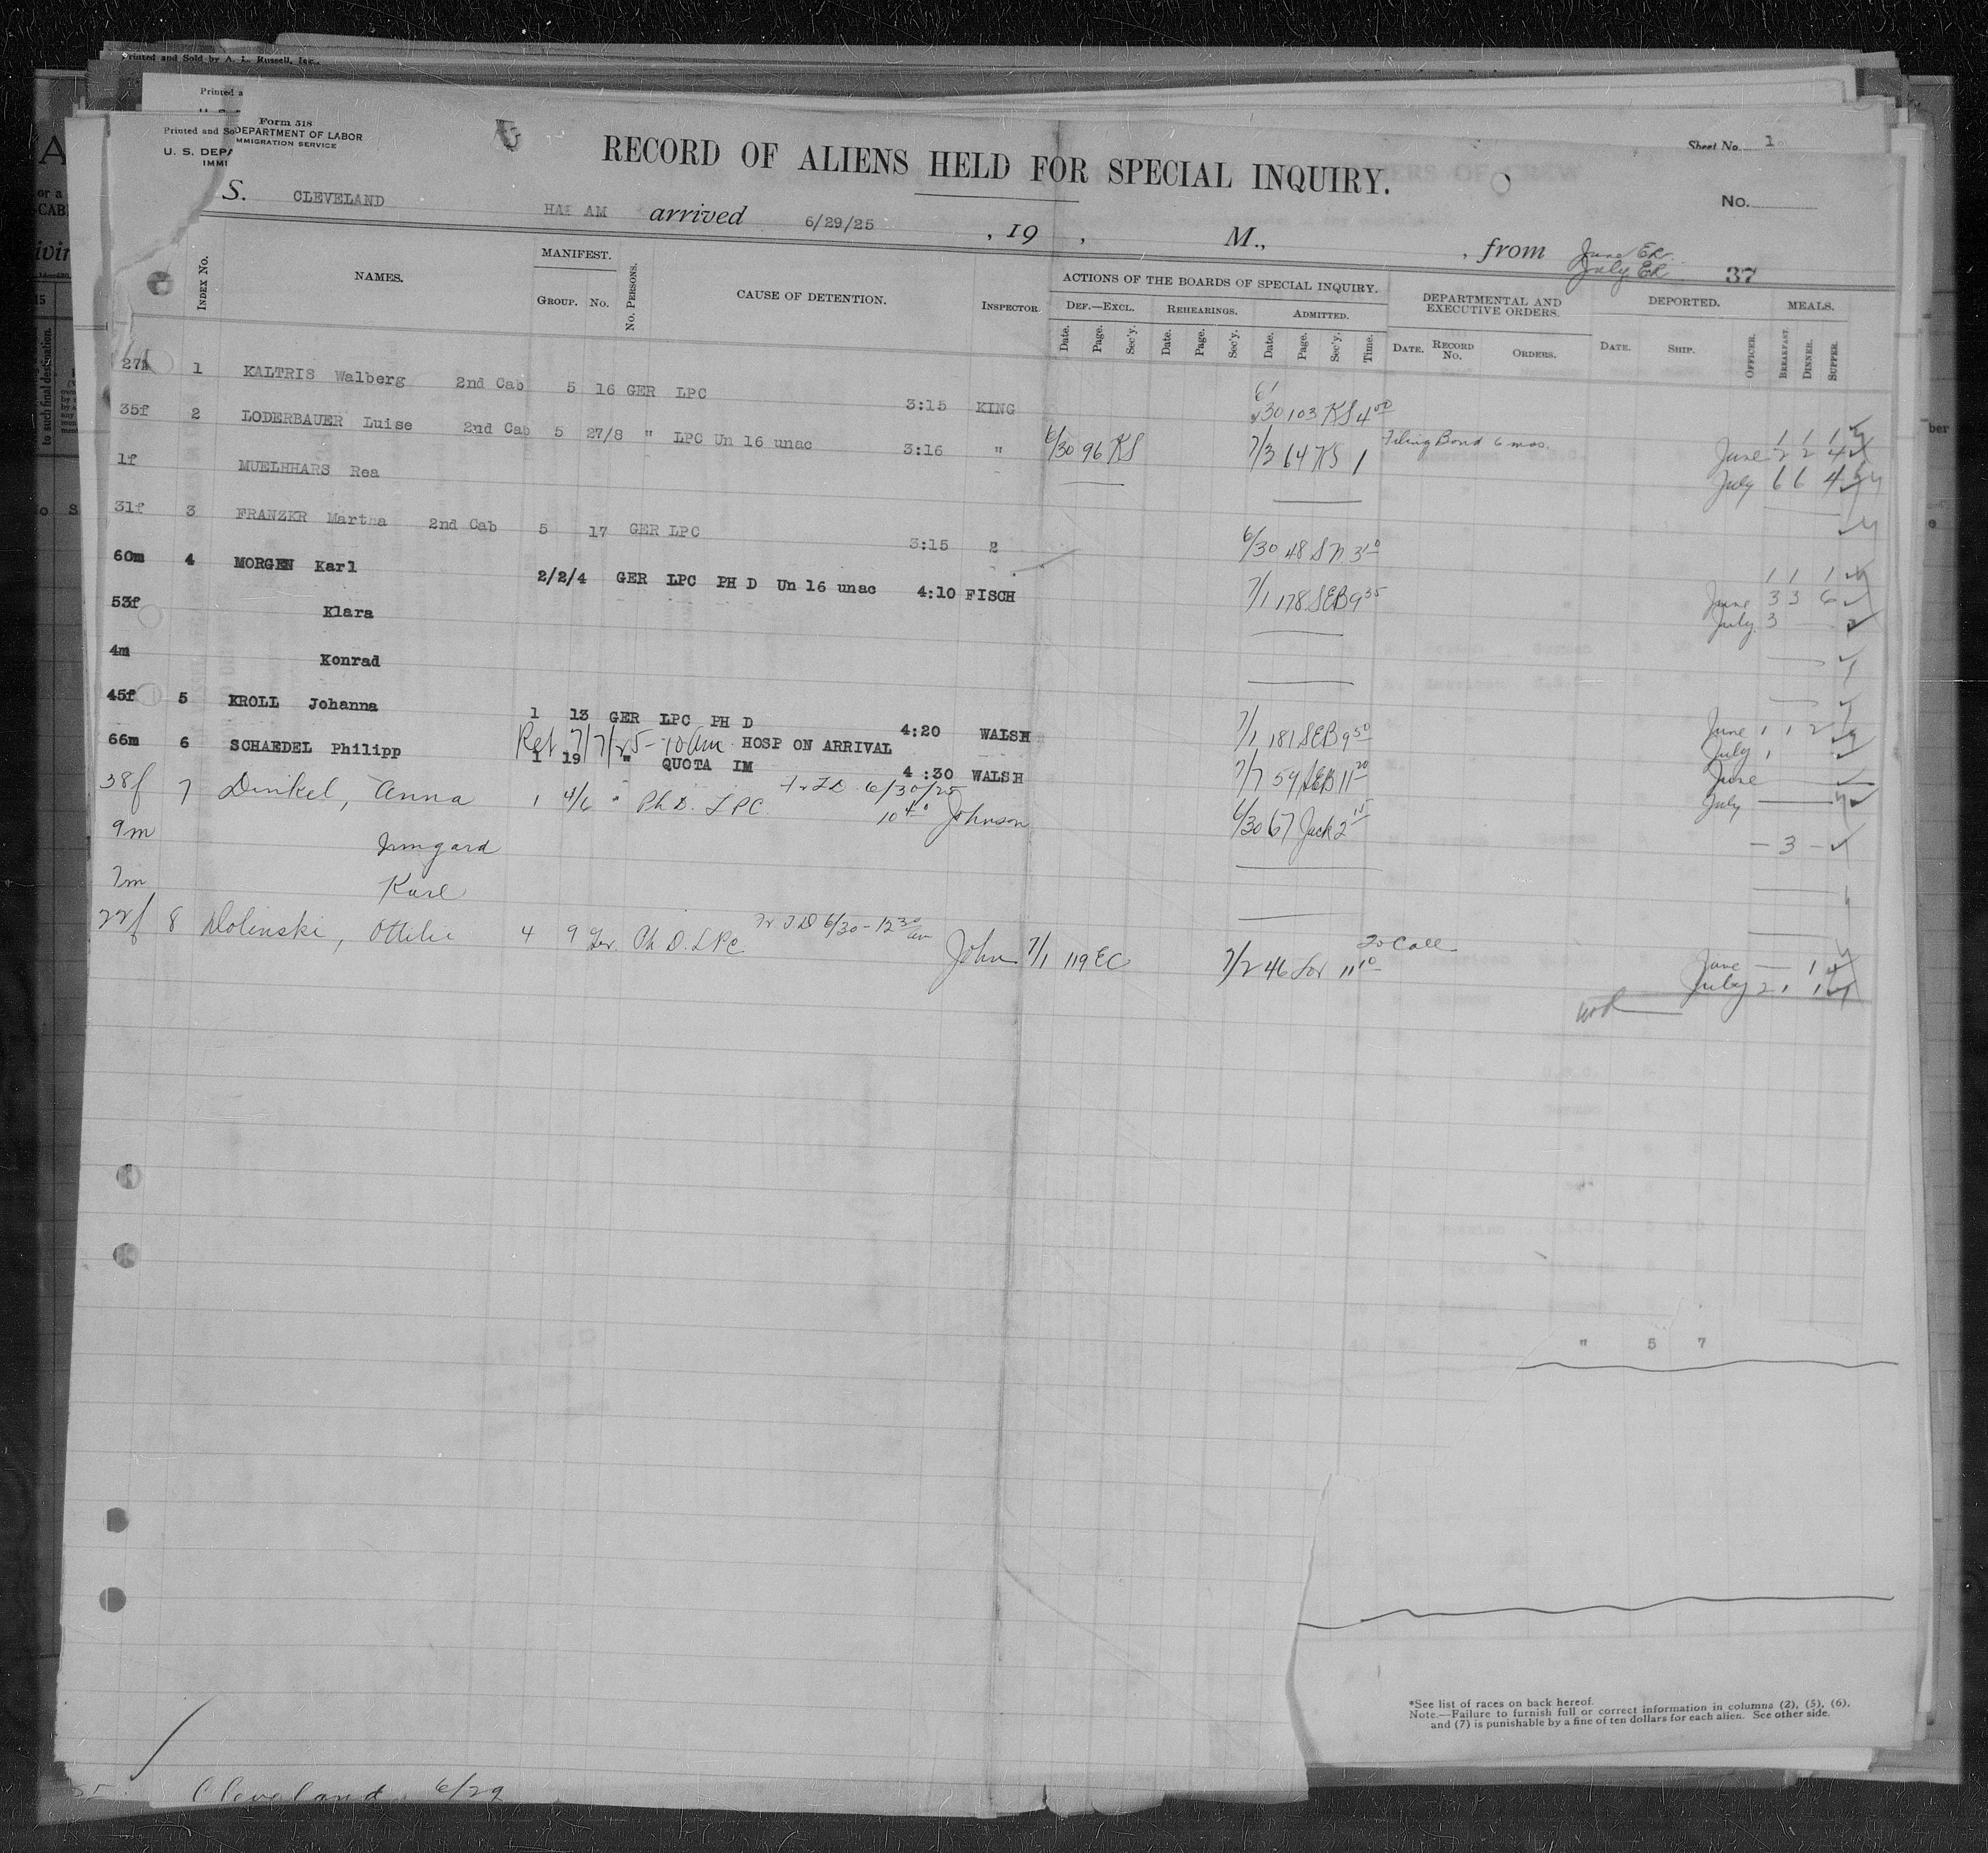 Printed and Sold by A. L. Russell, Inc.
Printed a
Form 518
Printed and So DEPARTMENT OF LABOR
MMIGRATION SERVICE
U. S. DEPA
IMMI
RECORD OF ALIENS HELD FOR SPECIAL INQUIRY.
Sheet No. 1
No.
S. CLEVELAND HA AM arrived 6/29/25 , 19 , M., , from June ER
July ER 37
INDEX No. NAMES. MANIFEST. GROUP. No. No. PERSONS. CAUSE OF DETENTION. INSPECTOR.
ACTIONS OF THE BOARDS OF SPECIAL INQUIRY. DEF.—EXCL. REHEARINGS. ADMITTED.
Date. Page. Sec'y. Date. Page. Sec'y. Date. Page. Sec'y. Time.
DEPARTMENTAL AND EXECUTIVE ORDERS. DATE. RECORD No. ORDERS.
DEPORTED. DATE. SHIP. OFFICER. MEALS. BREAKFAST. DINNER. SUPPER.
1 KALTRIS Walberg 2nd Cab 5 16 GER LPC 3:15 KING 6/30 103 KS 4 00
35f 2 LODERBAUER Luise 2nd Cab 5 27/8 " LPC Un 16 unac 3:16 " 6/30 96 KS 7/3 64 KS 1 Filing Bond 6 mos. June 2 2 4
1f MUELHHARS Rea July 6 6 4
31f 3 FRANZKR Martha 2nd Cab 5 17 GER LPC 3:15 2 6/30 48 3 10
60m 4 MORGEN Karl 2/2/4 GER LPC PH D Un 16 unac 4:10 FISCH 7/1 178 SEB 9 35 June 3 3 6
53f Klara July 3
4m Konrad
45f 5 KROLL Johanna 1 13 GER LPC PH D 4:20 WALSH 7/1 181 SEB 9 50 June 1 1 2
July 1
66m 6 SCHAEDEL Philipp Ret 7/7/25-10am HOSP ON ARRIVAL
1 19 " QUOTA IM 4:30 WALSH 7/7 59 SEB 11 20 June
July
38f 7 Dinkel, Anna 1 4/6 " Ph D. LPC 6/30/25 10 40 Johnson 6/30 67 Jack 2 15 3
9m Irmgard
7m Karl
22f 8 Dolinski, Ottilie 4 9 Ger. Ph D. LPC 6/30-12 30 John 7/1 119 EC 7/2 46 11 10 To Call June 1
July 2 1 1
" 5 7
*See list of races on back hereof.
Note.—Failure to furnish full or correct information in columns (2), (5), (6),
and (7) is punishable by a fine of ten dollars for each alien. See other side.
Cleveland 6/29